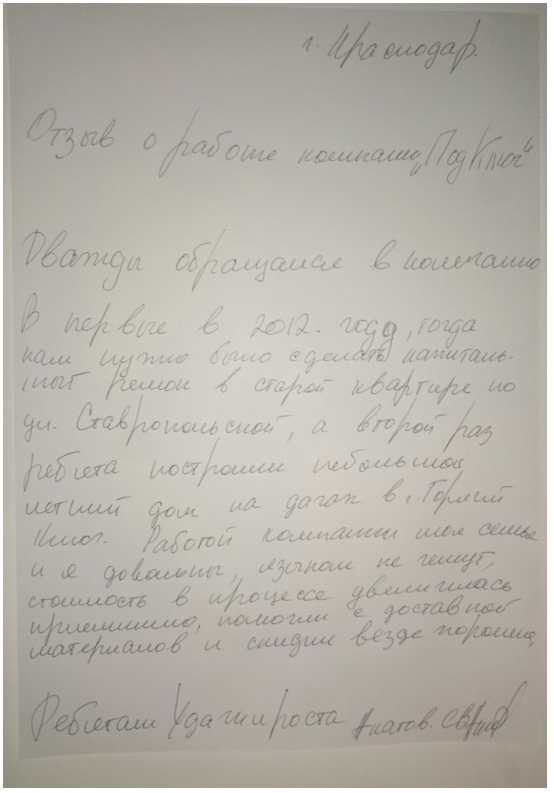 г. Краснодар.
Отзыв о работе компании „Под Ключ“
Дважды обращался в компанию
В первые в 2012. году, тогда
нам нужно было сделать капиталь-
ный ремон в старой квартире по
ул. Ставропольской, а второй раз
ребята построили небольшой
летний дом на дачах в г. Горячий
Ключ. Работой компании моя семья
и я довольны, языком не чешут,
стоимость в процессе увеличилась
приемлимо, помогли с доставкой
материалов и скидки везде хорошие,
Ребятам Удачи и роста